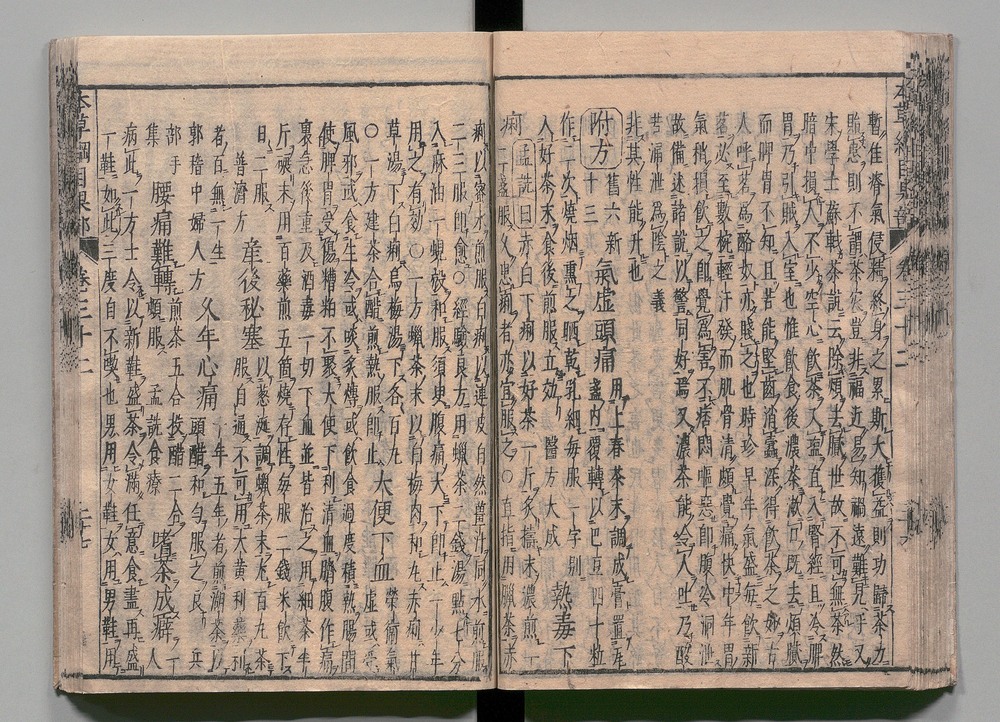 暫佳瘠氣侵精終身之累斯大獲益則功歸茶力
貽患則不謂茶災豈非福近易知禍遠難見乎又
宋學士蘇軾茶說云除煩去膩世故不可無茶然
暗中損人不少空心飲茶入鹽直入腎經且冷脾
胃乃引賊入室也惟飲食後濃茶漱口既去煩膩
而脾胃不知且苦能堅齒消蠹深得飲茶之妙古
人呼茗為酪奴亦賤之也時珍早年氣盛每飲新
茗必至數椀輕汗發而肌骨清頗覺痛快中年胃
氣稍損飲之即覺為害不痞悶嘔惡即腹冷洞泄
故備述諸說以警同好焉又濃茶能令人吐乃酸
苦涌泄為陰之義
非其性能升也
附方 舊六新十三 氣虛頭痛 用上春茶末調成膏置瓦盞內覆轉以巴豆四十粒
作二次燒烟熏之晒乾乳細每服一字別
入好茶末食後煎服立效 醫方大成 熱毒下
痢 孟詵曰赤白下痢以好茶一斤炙搗末濃煎一二盞服久患痢者亦宜服之○直指用臘茶赤
痢以蜜水煎服白痢以連皮自然薑汁同水煎服
二三服即愈○經驗良方用蠟茶二錢湯點七分
入麻油一蜆殼和服須臾腹痛大下即止一少年
用之有効○一方蠟茶末以白梅肉和丸赤痢甘
草湯下白痢烏梅湯下各百丸
○一方建茶合醋煎熱服即止 大便下血 榮衛氣虛或受
風邪或食生冷或啖炙煿或飲食過度積熱腸間
使脾胃受傷糟粕不聚大便下利清血臍腹作痛
裏急後重及酒毒一切下血並皆治之用細茶半
斤碾末用百藥煎五箇燒存性每服二錢米飲下
日二服
普濟方 產後秘塞 以葱涎調蠟茶末丸百丸茶
服自通不可用大黃利藥利
者百無一生
郭稽中婦人方 久年心痛 十年五年者煎湖茶以
頭醋和勻服之良兵
部手集 腰痛難轉 煎茶五合投醋二合
頓服 孟詵食療 嗜茶成癖 一人
病此一方士令以新鞋盛茶令滿任意食盡再盛
一鞋如此三度自不喫也男用女鞋女用男鞋用